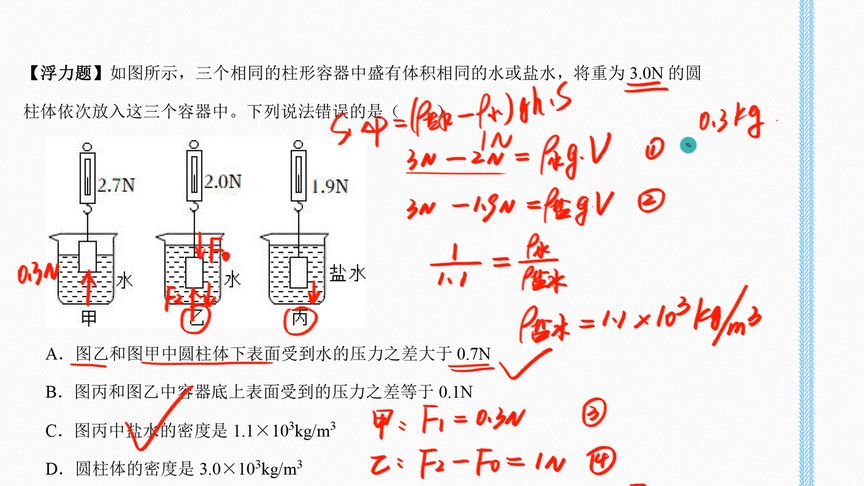 【浮力题】如图所示，三个相同的柱形容器中盛有体积相同的水或盐水，将重为 3.0N 的圆
柱体依次放入这三个容器中。下列说法错误的是（
S ΔP=(ρ盐水-ρ水)gh·S
0.3kg
1N
3N-2N=ρ水g·V ①
3N-1.9N=ρ盐gV ②
1/1.1=ρ水/ρ盐水
ρ盐水=1.1×10³kg/m³
2.7N
2.0N
1.9N
0.3N
F₀
F₂
水
水
盐水
甲
乙
丙
A．图乙和图甲中圆柱体下表面受到水的压力之差大于 0.7N
B．图丙和图乙中容器底上表面受到的压力之差等于 0.1N
C．图丙中盐水的密度是 1.1×10³kg/m³
D．圆柱体的密度是 3.0×10³kg/m³
甲：F₁=0.3N ③
乙：F₂-F₀=1N ④